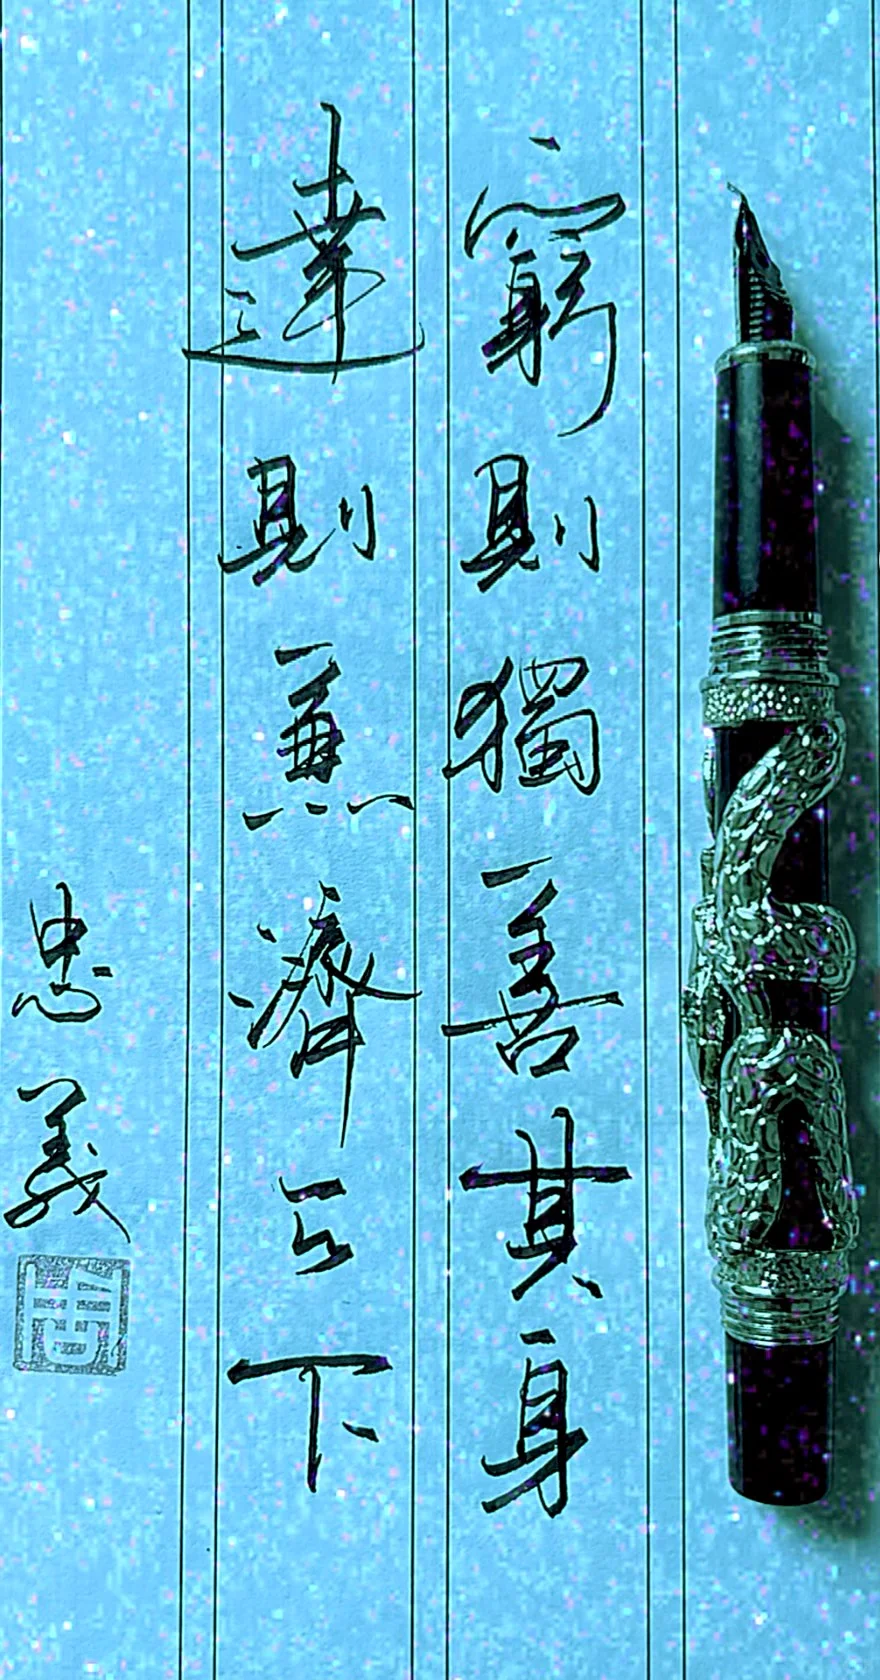 窮則獨善其身
達則兼濟天下
忠義